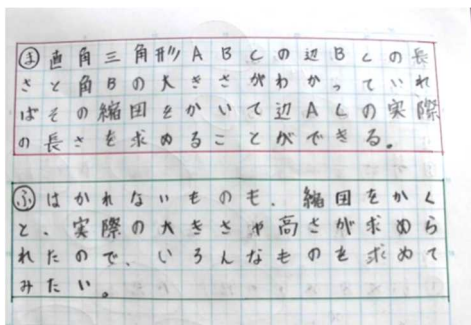 ま直角三角形ABCの辺BCの長
さと角Bの大きさがわかっていれ
ばその縮図をかいて辺ACの実際
の長さを求めることができる。
ふはかれないものも、縮図をかく
と、実際の大きさや高さが求めら
れたので、いろんなものを求めて
みたい。